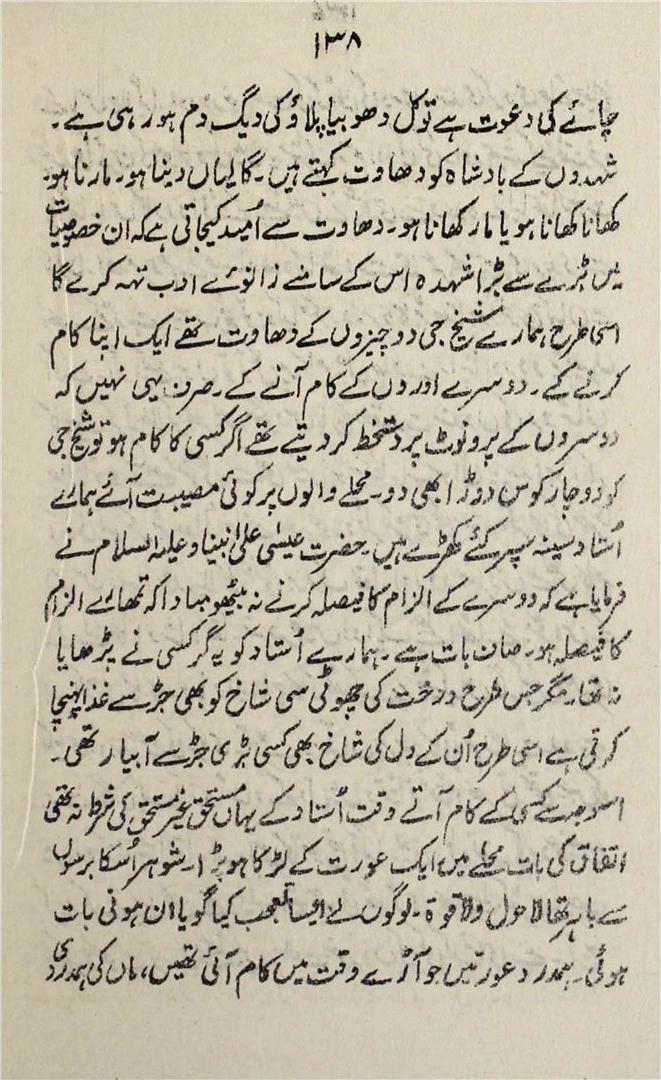 ۱۳۸
چائے کی دعوت ہے تو کل دھوبیا پلاؤ کی دیگ دم ہو رہی ہے۔
شہدوں کے بادشاہ کو دھاوت کہتے ہیں۔ گالیاں دینا ہو۔ مارنا ہو۔
کھانا کھانا ہو یا مار کھانا ہو۔ دھاوت سے اُمید کیجاتی ہے کہ ان خصوصیات
میں بڑے سے بڑا شہدہ اس کے سامنے زانوئے ادب تہہ کرے گا
اسی طرح ہمارے شیخ جی دو چیزوں کے دھاوت تھے ایک اپنا کام
کرنے کے۔ دوسرے اوروں کے کام آنے کے۔ صرف یہی نہیں کہ
دوسروں کے پرونوٹ پر دستخط کر دیتے تھے اگر کسی کا کام ہو تو شیخ جی
کو دو چار کوس دوڑا بھی دو۔ محلے والوں پر کوئی مصیبت آئے ہمارے
اُستاد سینہ سپر کئے کھڑے ہیں۔ حضرت عیسٰی علیٰ نبینا و علیہ السلام نے
فرمایا ہے کہ دوسرے کے الزام کا فیصلہ کرنے نہ بیٹھو مبادا کہ تمھارے الزام
کا فیصلہ ہو۔ صاف بات ہے۔ ہمارے اُستاد کو یہ گر کسی نے پڑھایا
نہ تھا۔ مگر جس طرح درخت کی چھوٹی سی شاخ کو بھی جڑ سے غذا پہنچا
کرتی ہے اسی طرح اُن کے دل کی شاخ بھی کسی بڑی جڑ سے آبیار تھی۔
اسوجہ سے کسی کے کام آتے وقت اُستاد کے یہاں مستحق غیر مستحق کی شرط نہ تھی
اتفاق کی بات محلے میں ایک عورت کے لڑکا ہو پڑا۔ شوہر اُسکا برسوں
سے باہر تھا لاحول ولا قوۃ۔ لوگوں نے ایسا تعجب کیا گویا ان ہونی بات
ہوئی۔ ہمدرد عورتیں جو آڑے وقت میں کام آئی تھیں، ماں کی ہمدردی